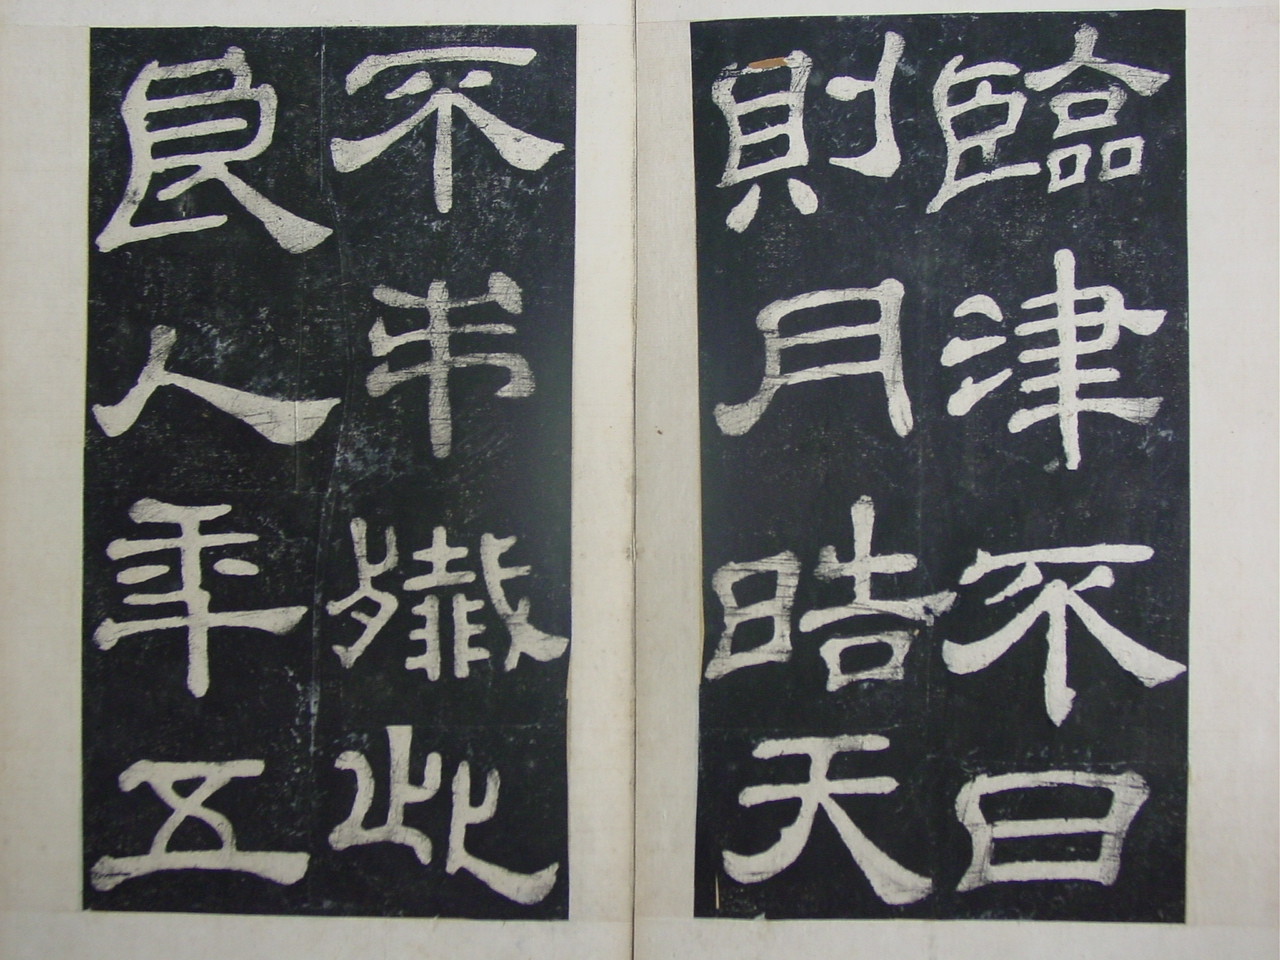 臨津不日
則月晧天
不弔殲此
良人年五